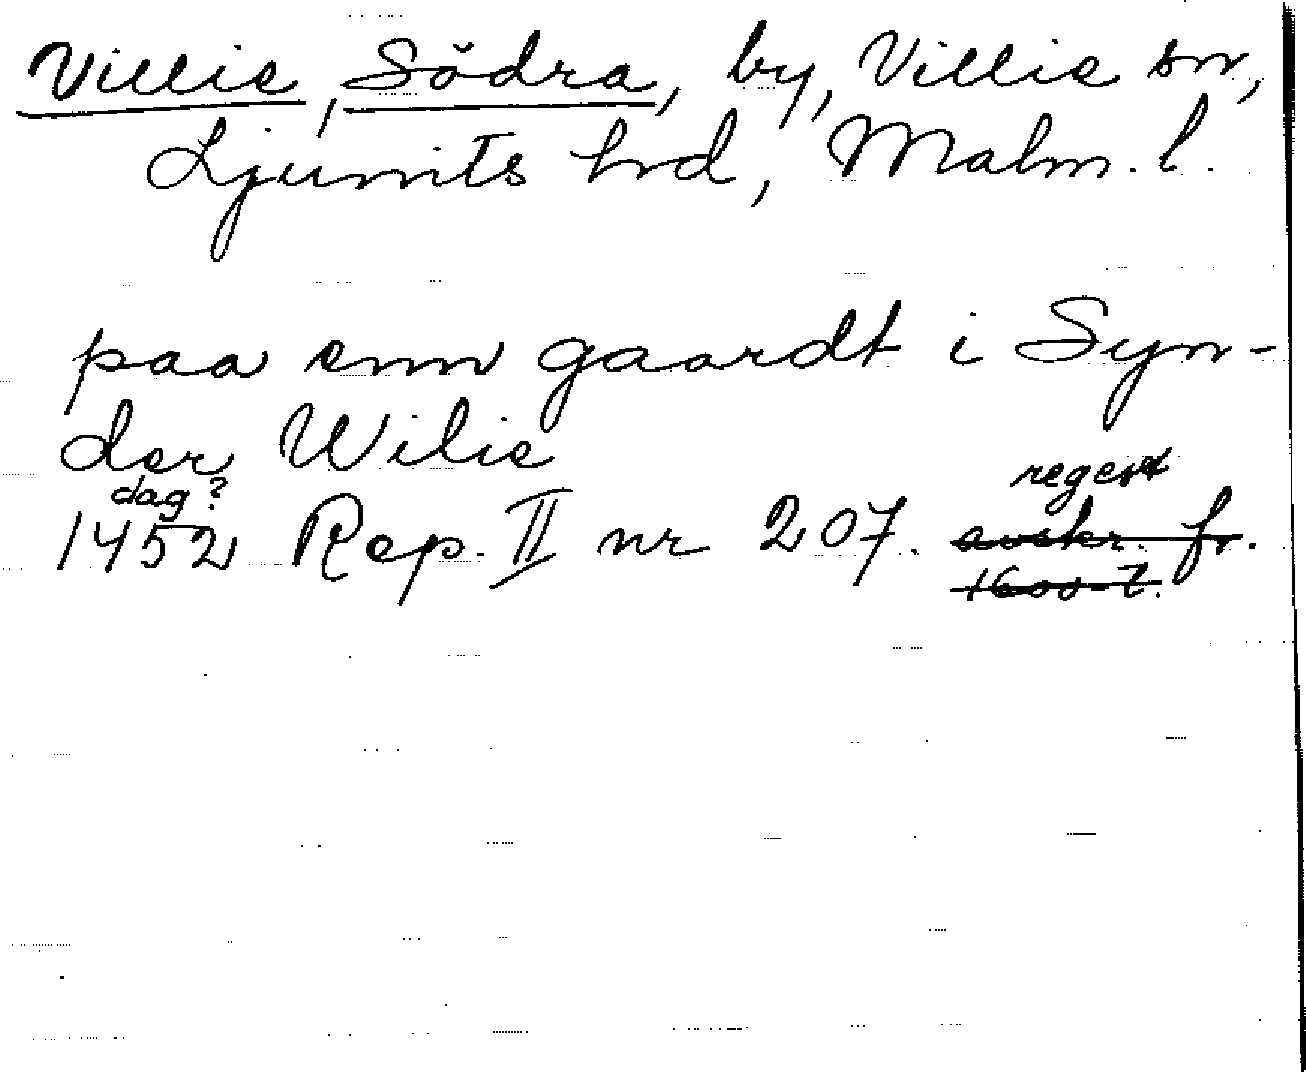 Villie, Södra, by, Villie sn,
Ljunits hrd, Malm. l.
paa enn gaardt i Syn-
der Wilie
dag? regest
1452 Rep. II nr 207. avskr. fr.
1600-t.